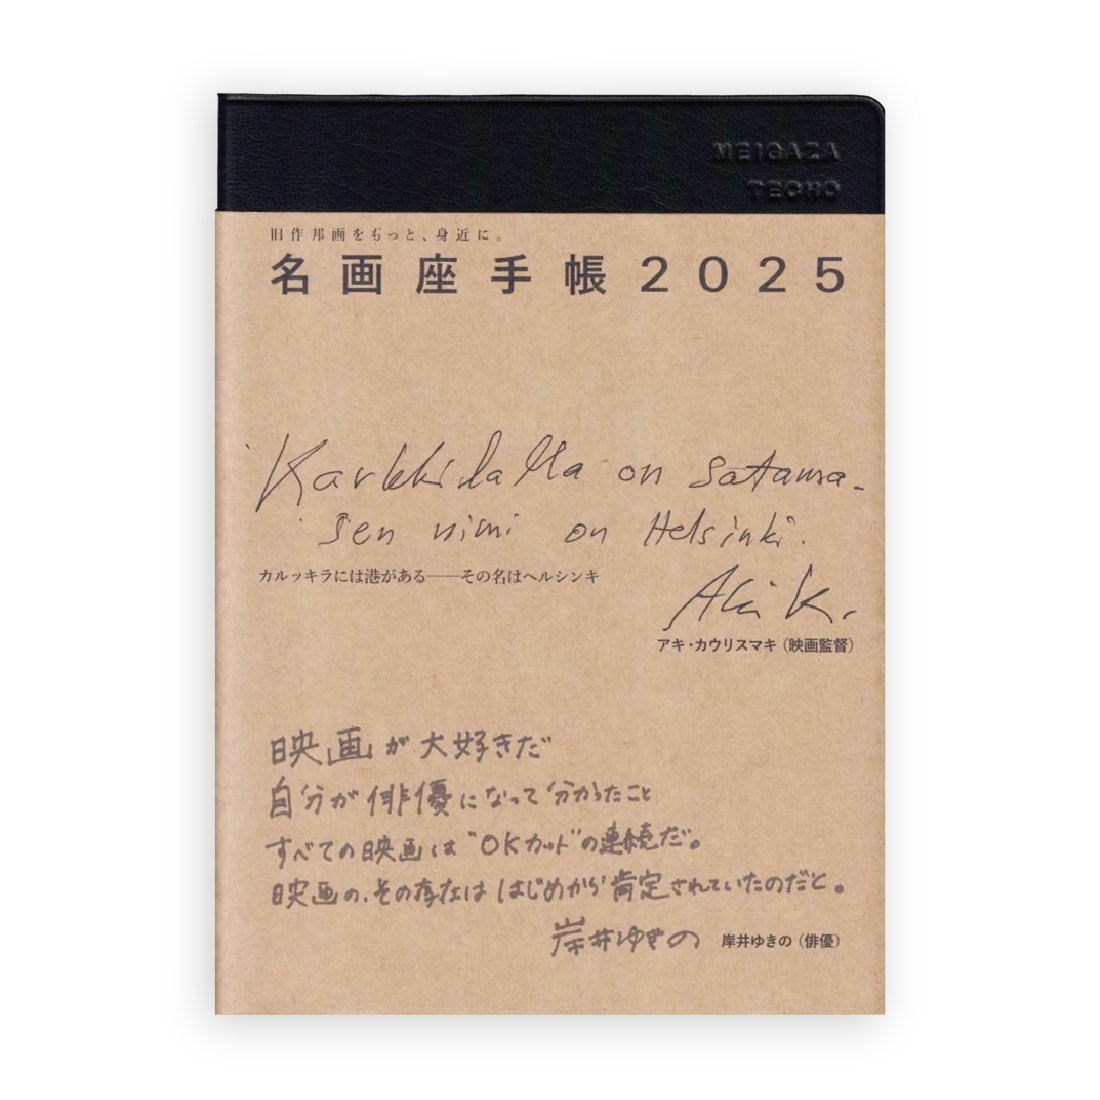 MEIGAZA
TECHO
旧作邦画をもっと、身近に。
名画座手帳2025
Karkkilalla on satama-
sen nimi on Helsinki.
カルッキラには港がある──その名はヘルシンキ
Aki K.
アキ・カウリスマキ（映画監督）
映画が大好きだ
自分が俳優になって分かったこと
すべての映画は"OKカット"の連続だ。
映画の、その存在ははじめから肯定されていたのだと。
岸井ゆきの
岸井ゆきの（俳優）